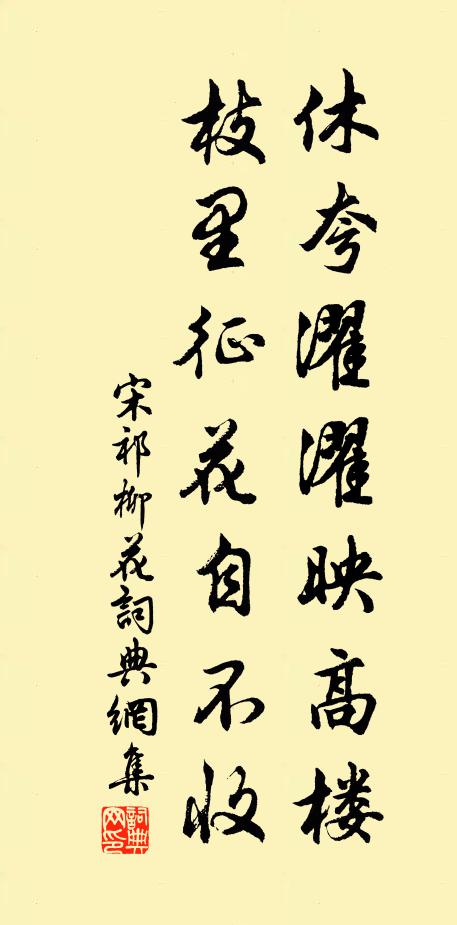 休夸濯濯映高楼
枝里征花自不收
宋祁柳花詞典網集
詞典网印